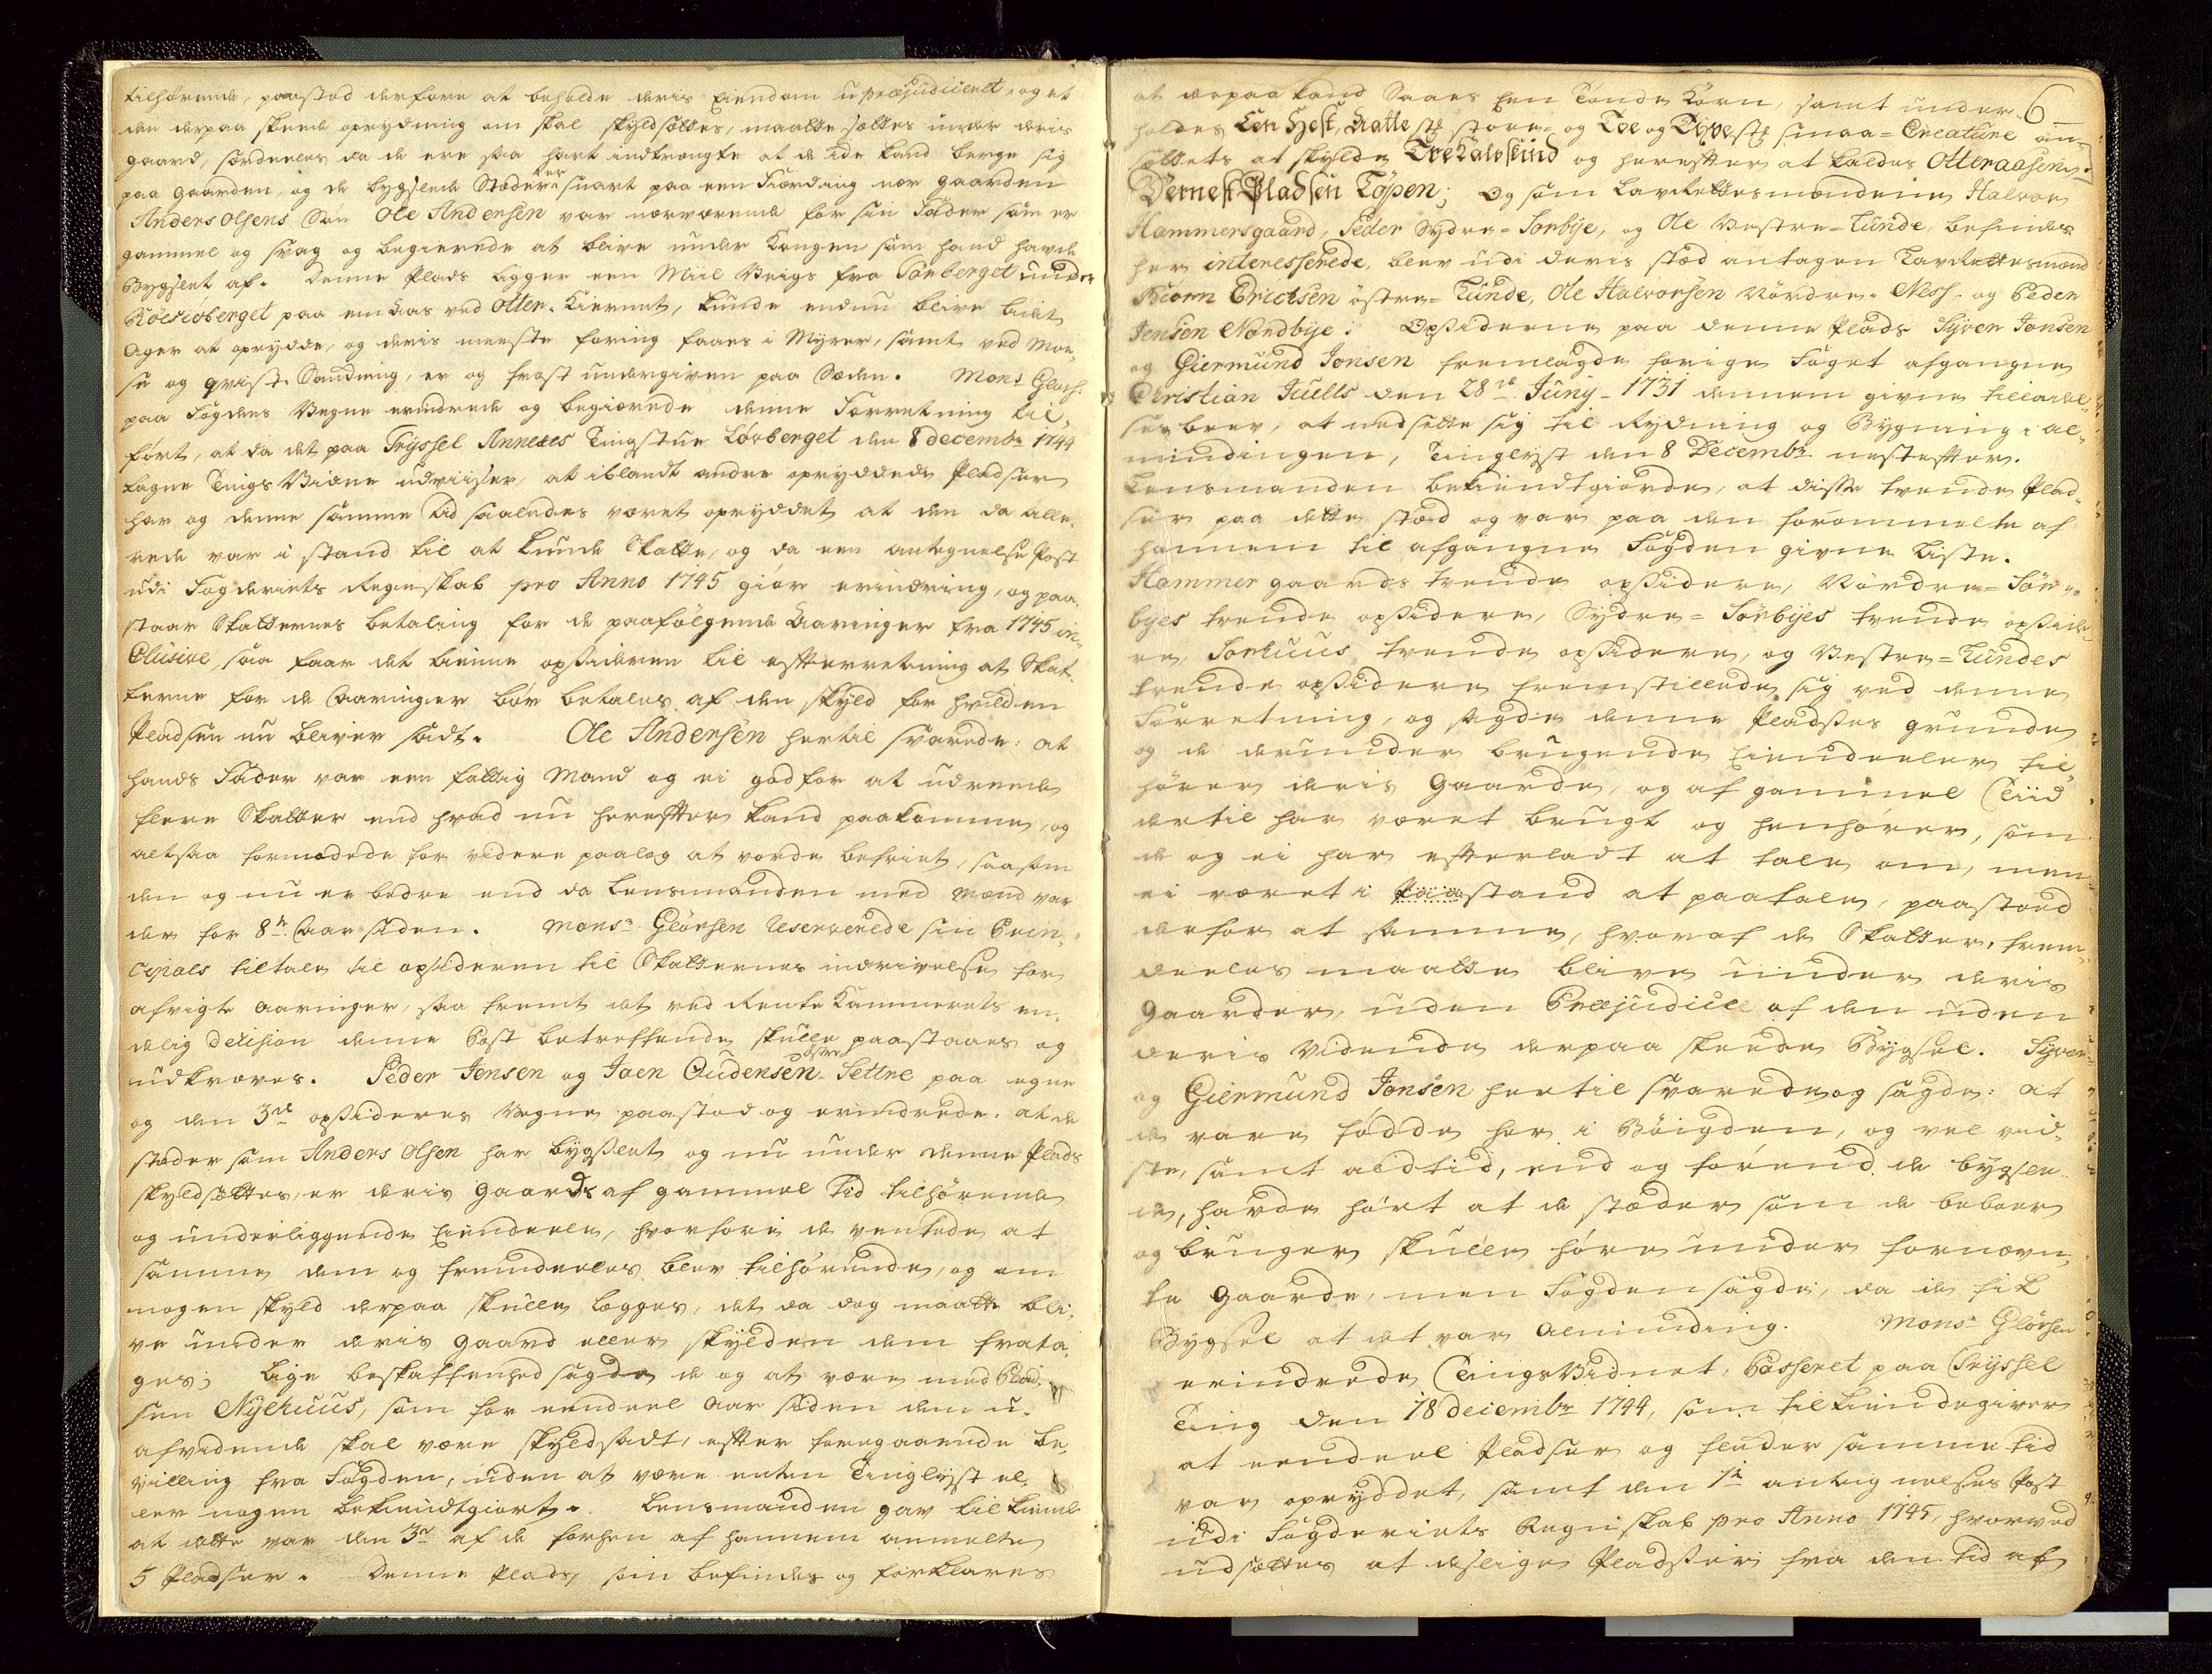 tilhørende, paastod derfore at beholde deris Eiendom upræjudiceret, og at
den derpaa skeede oprydning om skal skyldsættes, maatte sættes under deris
gaard, særdeeles da de ere saa hart indtrængte at de icke kand berge sig
paa gaarden, og de bygslede Stæder er snart paa een Fiærding nær gaarden
Anders Olsens Søn Ole Andersen var nærværende for sin Fader som er
gammel og svag og begierede at blive under Kongen som hand havde
Bygslet af. Denne Plads ligger een Miil Veigs fra Sørberget under
Röesiöberget paa en Aas ved Otter-Kiernet, kunde endnu blive lidet
Ager at oprydde, og deris meeste foring faaes i Myrer, samt ved Mo-
se og qvist-Sanckning, er og frost undergiven paa Sæden. Mons.r Glørs:
paa Fogdens Vegne erindrede og begiærede denne Forretning til-
ført, at da det paa Tryssel Annexes Tingstue Lörberget den 8 decembr. 1744
tagne Tings Vidne udviiser, at iblandt andre opryddede Pladser
har og denne samme Tid saaledes været opryddet at den da alle-
rede var i stand til at kunde Skatte, og da een antegnelse Post
udi Fogderiets Regnskab pro Anno 1745 giör erindring, og paa-
staar Skatternes betaling for de paafölgende Aaringer fra 1745 in-
clusive, saa faar det tiene opsideren til efterretning at Skat-
terne for de Aaringer bör betales af den skyld for hvilcken
Pladsen nu bliver sadt. Ole Andersen hertil svarede: at
hands Fader var een fattig Mand og ei god for at udreede
flere Skatter end hvad nu herefter kand paakomme, og
altsaa formodede for videre paalæg at vorde befriet, saasom
den og nu er bedre end da Lensmanden med Mænd var
der for 8te Aar siden. Mons.r Glørsen Reserverede sin Prin-
cipals tiltale til opsideren til Skatternes inddrivelse for
afvigte aaringer, saa fremt det ved Rente Kammerets en-
delig decision denne Post betreffende skulle paastaaes og
udkræves. Peder Jensen og Joen Oudensen östre Settre paa egne
og den 3de opsideres Vegne paastod og erindrede: at de
stæder som Anders Olsen har bygslet og nu under denne Plads
skyldsættes, er deris Gaards af gammel tid tilhörende
og underliggende Eiendeele, hvorfore de ventede at
samme dem og fremdeeles blev tilhörende, og om
nogen skyld derpaa skulle lægges, det da dog maatte bli-
ve under deris gaard eller skylden dem frata-
ges; Lige beskaffenhed sagde de og at være med Plad-
sen Nyehuus, som for eendeel Aar siden dem u-
afvidende skal være skyldsadt, efter foregaaende be-
villing fra Fogden, uden at være enten Tinglyst el-
ler nogen bekiendtgiort. Lensmanden gav tilkiende
at dette var den 3de af de forhen af hannem anmelte
5 Pladser. Denne Plads, som befindes og forklares
6
at derpaa kand Saaes Een Tønde Korn, samt under-
holdes Een Hest, Aatte st: store- og Toe og Tyve st: smaa-Creature an-
sættes at skylde Tre Kalvskind og herefter at kaldes Otteraasen.
Dernest Pladsen Töpen; Og som Lavrettesmændene Halvor
Hammersgaard, Peder Sydre-Sørbye, og Ole Vestre-Lunde, befindes
her interesserede, blev udi deris stæd antagen Lavrettesmænd
Biørn Erichsen östre-Lunde, Ole Halvorsen Nördre-Ness- og Peder
Jensen Nordbye: Opsiderne paa denne Plads Syver Jonsen
og Giermund Jonsen fremlagde forige Foget afgangne
Christian Juells den 28de Juny-1731 dennem givne tilladel-
ses brev, at nedsette sig til Rydning og Bygning i al-
mindingen, Tinglyst den 8 Decembr. nestefter.
Lensmanden bekiendtgiorde, at disse tvende Plad-
ser paa dette stæd og var paa den forommelte af
hannem til afgangne Fogden givne Liste.
Hammergaards trende opsidere, Nördre-Sør-
byes trende opsidere, Sydre-Sörbyes trende opside-
re, Sorhuus tvende opsidere, og Vestre-Lundes
trende opsidere fremstillede sig ved denne
Forretning, og sagde denne Pladses grunde
og de derunder brugende Eiendeeler til-
hörer deris Gaarde, og af gammel Tiid
dertil har været brugt og henhører, som
de og ei har efterladt at tale om, men
ei været i stand at paatale, paastoed
derfor at samme, hvoraf de Skatter, frem-
deeles maatte blive under deris
Gaarder, uden Præjudice af den uden
deris vidende derpaa skeede Bygsel. Syver
og Giermund Jonsen hertil svarede og sagde: at
de vare födde her i Böigden, og vel vid-
ste, samt aldtid, end og förend de bygsle-
de, havde hørt at de stæder som de beboer
og bruger skulle høre under fornævn-
te Gaarde, men Fogden sagde, da de fik
Bygsel at det var Alminding. Mons.r Glörsen
erindrede Tings Vidnet, Passeret paa Tryssel
Ting den 18 decembr. 1744, som tilkiendegiver
at eendeel Pladser og fleeder samme tid
var opryddet, samt den 1te antegnelses Post
udi Fogderiets Regnskab pro Anno 1745, hvorved
udsættes at deslige Pladser fra den tid af